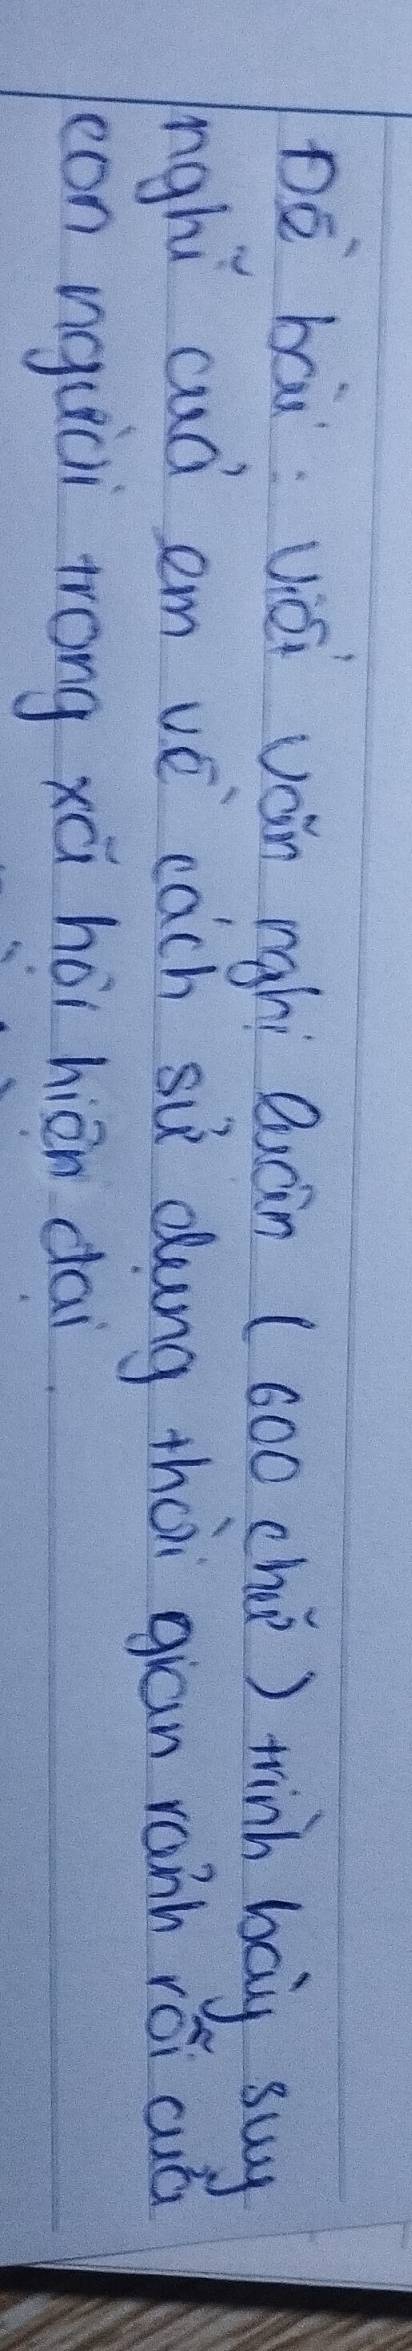 Đề bài: Viết văn nghị luận (600 chữ) trình bày suy
nghĩ của em về cách sử dụng thời gian rảnh rỗi của
con người trong xã hội hiện đại.